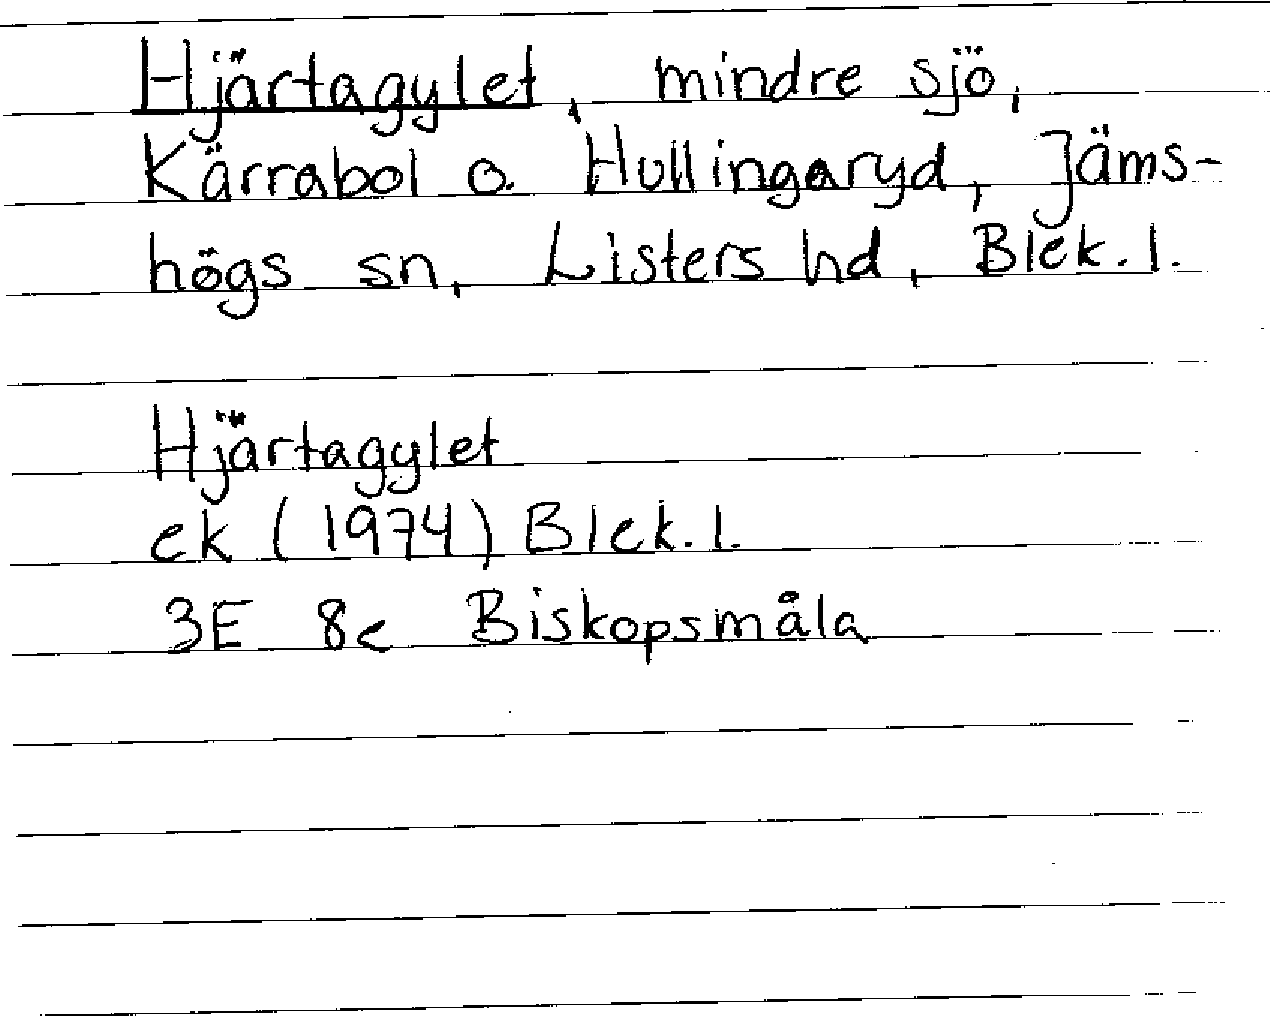 Hjärtagylet, mindre sjö,
Kärrabol o. Hullingaryd, Jäms-
högs sn, Listers hd, Blek. l.
Hjärtagylet
ek (1974) Blek. l.
3E 8c Biskopsmåla